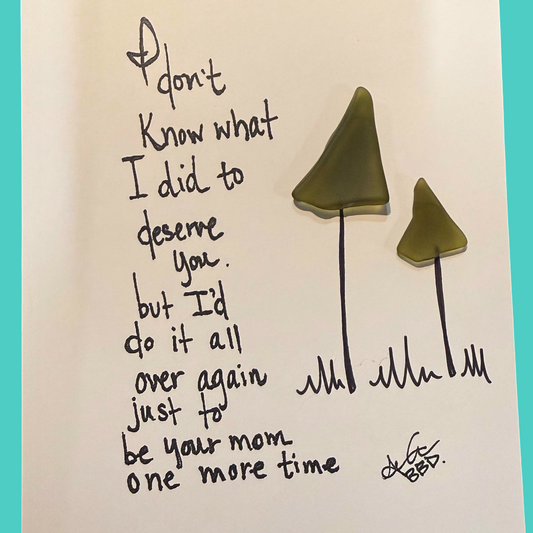 I
don't
know what
I did to
deserve
you.
but I'd
do it all
over again
just to
be your mom
one more time
BBD.